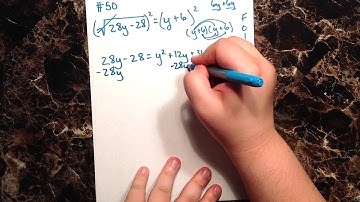 #50
(√28y-28)² = (y+6)²
(y+6)(y+6)
F
O
I
28y-28 = y²+12y+
-28y -28y